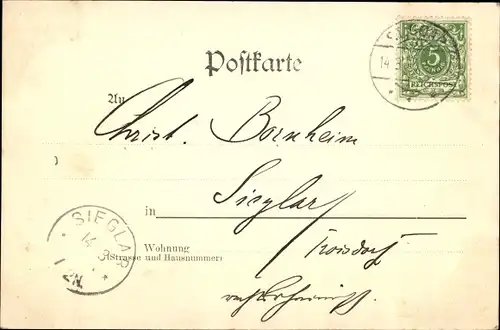 Postkarte
5
REICHSPOST
14.3
An
Christ. Bornheim
Sieglar
in
Troisdorf
SIEGLAR
14 3
Wohnung
(Strasse und Hausnummer)